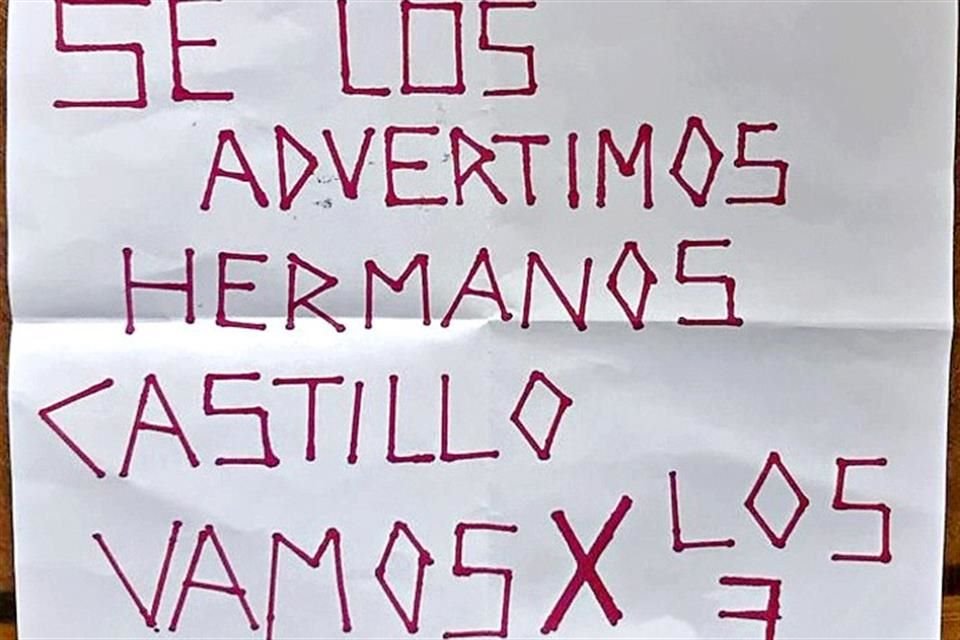 SE LOS
ADVERTIMOS
HERMANOS
CASTILLO
VAMOS X LOS
3